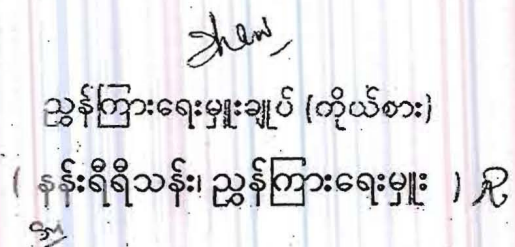 ညွှန်ကြားရေးမှူးချုပ် (ကိုယ်စား)
( နန်းရီရီသန်း၊ ညွှန်ကြားရေးမှူး )